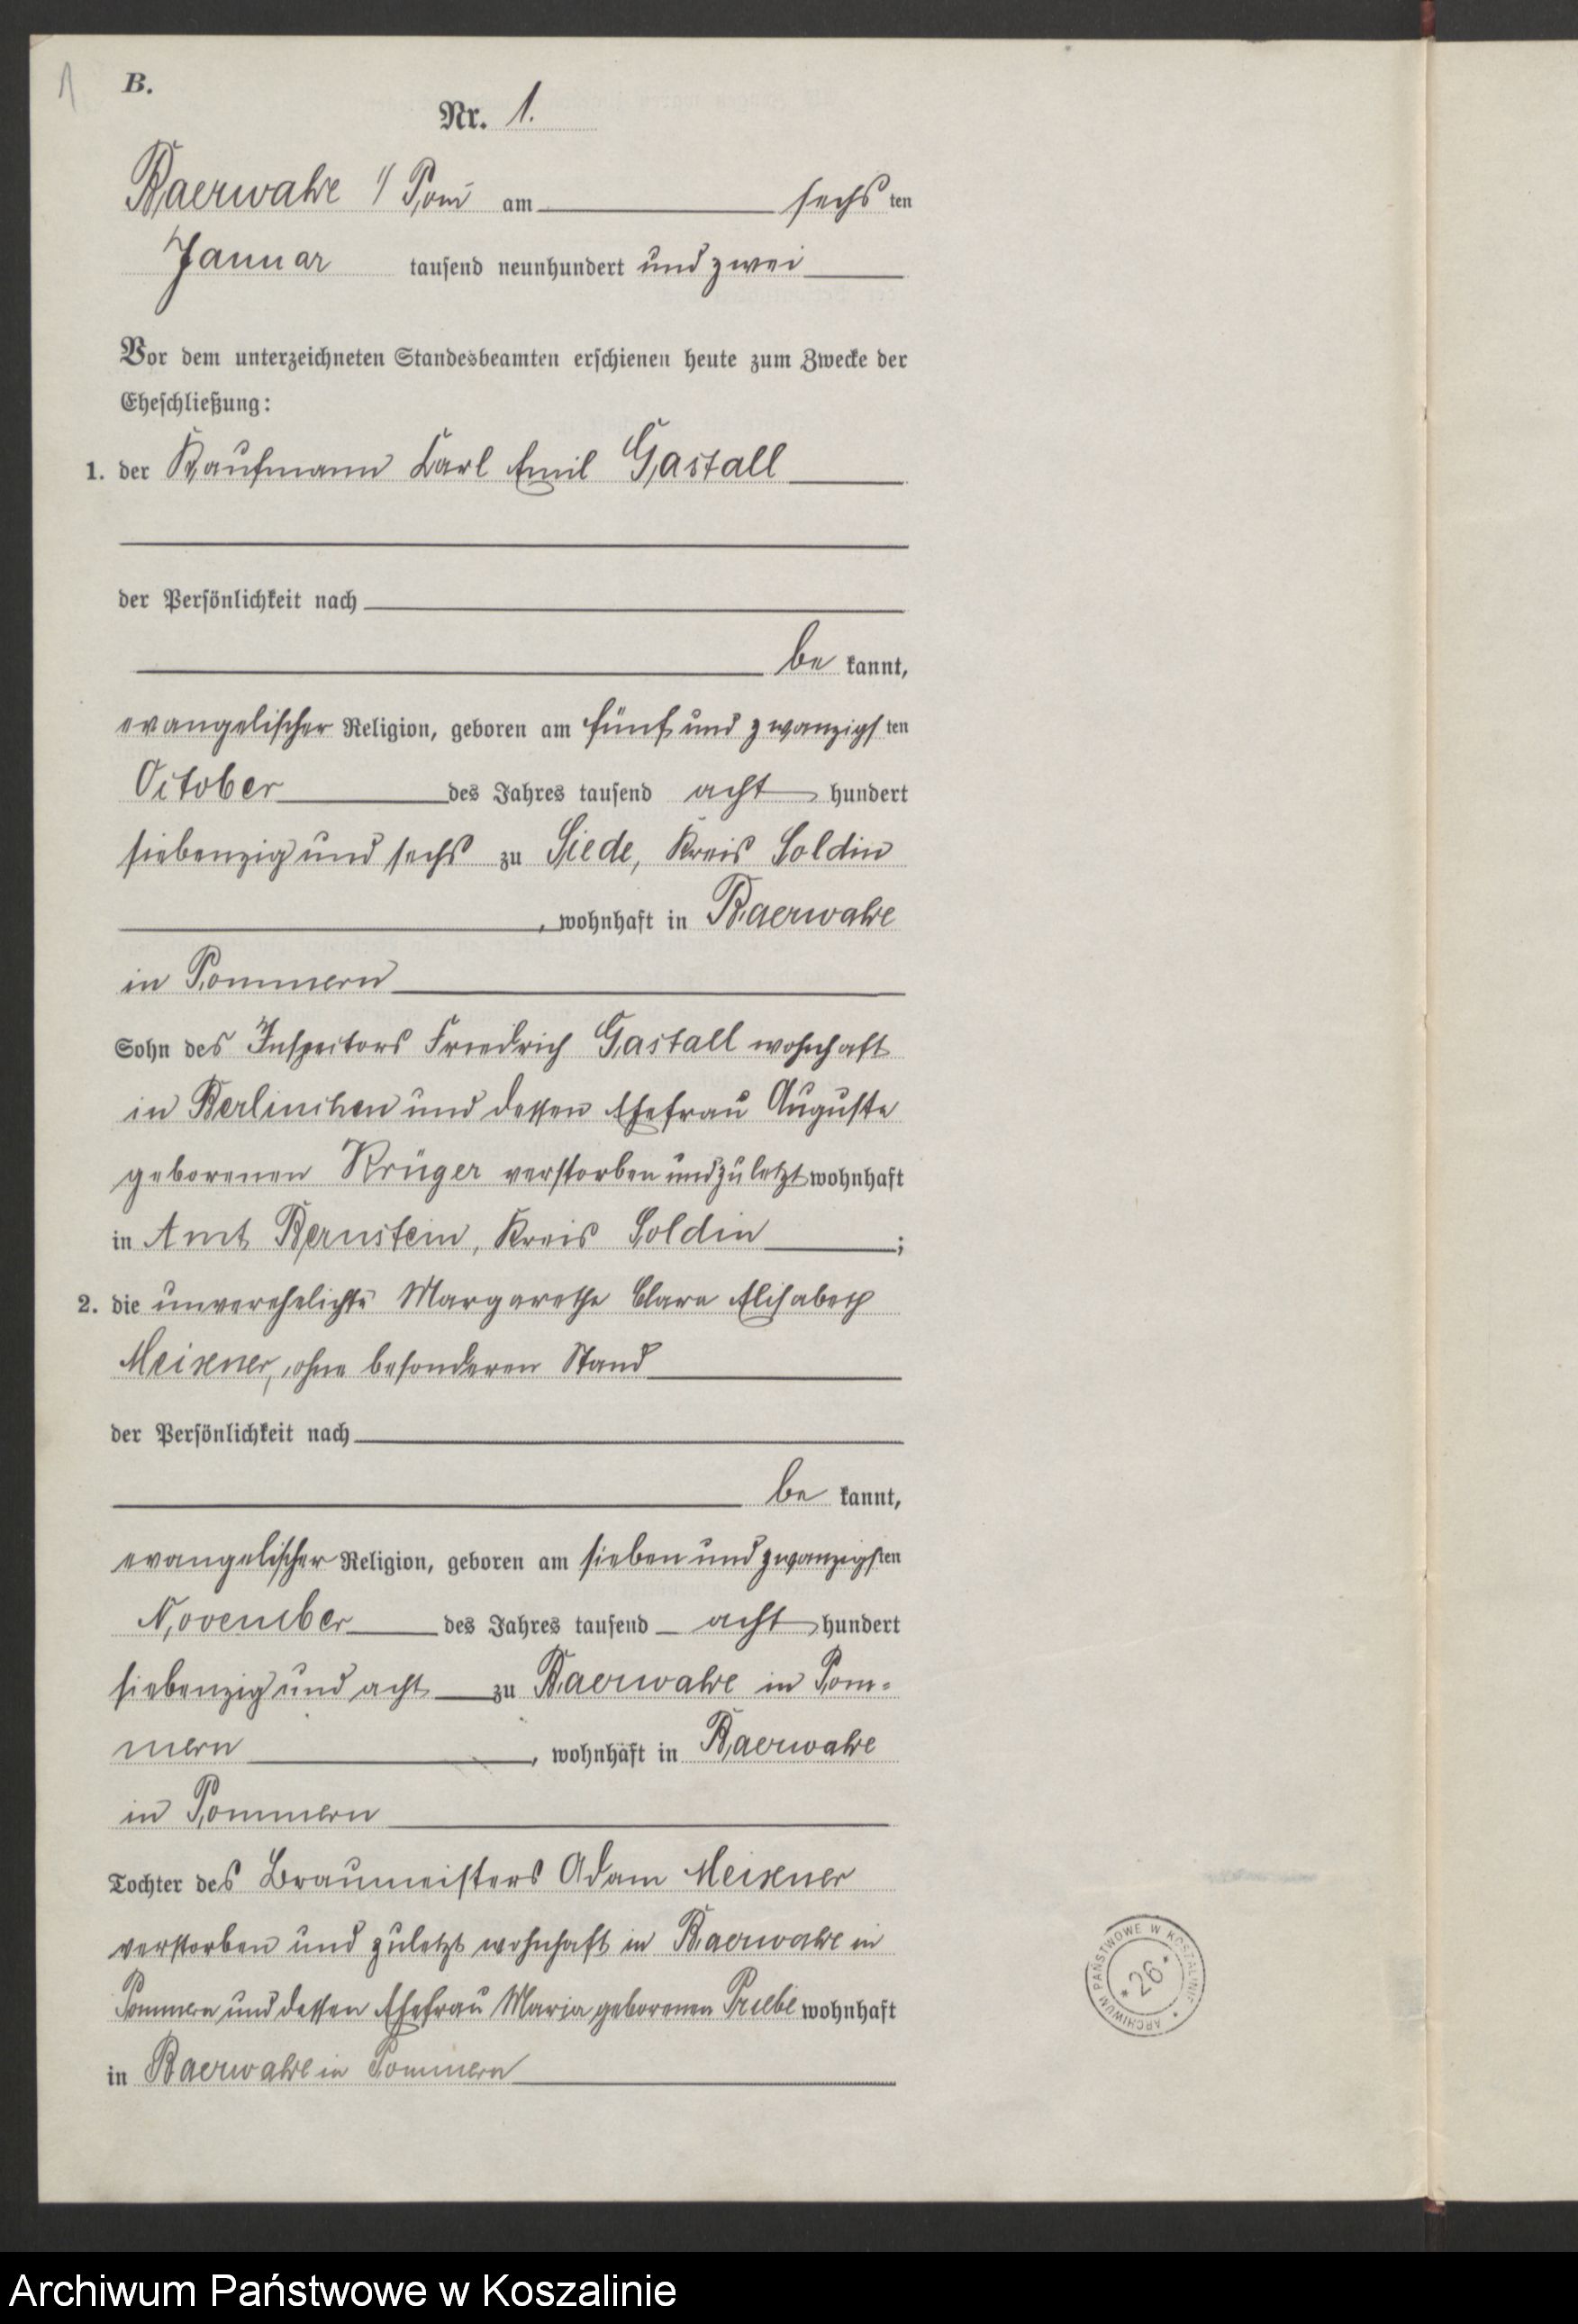 1
B.
Nr. 1.
Baerwalde i/ Pom am sechs ten
Januar tausend neunhundert und zwei
Vor dem unterzeichneten Standesbeamten erschienen heute zum Zwecke der
Eheschließung:
1. der Kaufmann Carl Emil Gastall
der Persönlichkeit nach
be kannt,
evangelischer Religion, geboren am fünf und zwanzigs ten
October des Jahres tausend acht hundert
siebenzig und sechs zu Siede, Kreis Soldin
, wohnhaft in Baerwalde
in Pommern
Sohn des Inspectors Friedrich Gastall wohnhaft
in Berlinchen und dessen Ehefrau Auguste
geborenen Krüger verstorben und zuletzt wohnhaft
in Amt Bernstein, Kreis Soldin ;
2. die unverehelichte Margarethe Clara Elisabeth
Meixner, ohne besonderen Stand
der Persönlichkeit nach
be kannt,
evangelischer Religion, geboren am sieben und zwanzigsten
November des Jahres tausend acht hundert
siebenzig und acht zu Baerwalde in Pom=
mern , wohnhaft in Baerwalde
in Pommern
Tochter des Braumeisters Adam Meixner
verstorben und zuletzt wohnhaft in Baerwalde in
Pommern und dessen Ehefrau Maria geborenen Priebe wohnhaft
in Baerwalde in Pommern
ARCHIWUM PAŃSTWOWE W KOSZALINIE
* 26 *
Archiwum Państwowe w Koszalinie